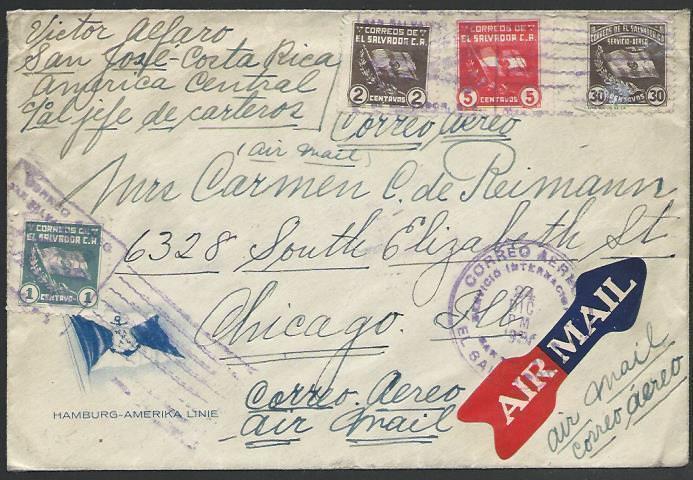 Victor Alfaro
San José-Costa Rica
America Central
jefe de carteros
CORREOS DE
EL SALVADOR C.A.
2 2
CENTAVOS
CORREOS DE
EL SALVADOR C.A.
5 5
CENTAVOS
CORREOS DE EL SALVADOR C.A.
SERVICIO AEREO
30 30
CENTAVOS
Correo Aereo
(air mail)
Mrs Carmen C. de Reimann
6328 South Elizabeth St
Chicago. Ill
CORREOS DE
EL SALVADOR C.A.
1 1
CENTAVO
CORREO AEREO
SERVICIO INTERNACIONAL
24
DIC
PM
EL SAL
HAMBURG-AMERIKA LINIE
Correo. Aereo
air mail
AIR MAIL
air mail
correo aéreo